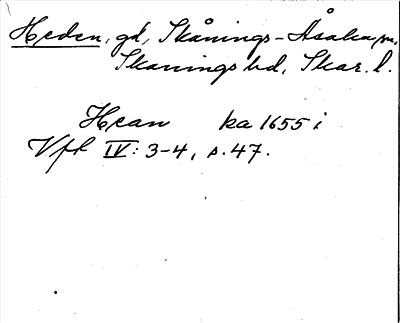 Heden, gd, Skånings-Åsaka sn,
Skånings hd, Skar. l.
Hean ka 1655 i
Vfl IV: 3-4, s. 47.